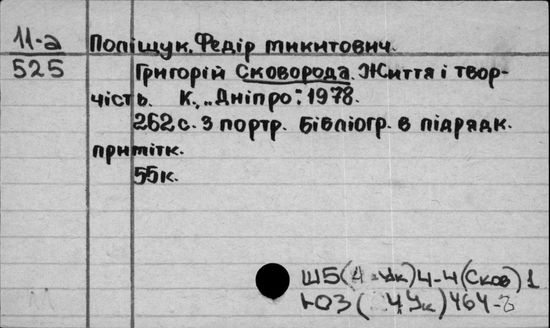 11-а Поліщук, Федір Микитович.
525 Григорій Сковорода. Життя і твор-
чість. К., „Дніпро": 1978.
262 с. з портр. Бібліогр. в підрядк.
примітк.
55к.
Ш5(4-Ук)4-4(Сков)1
Ю3( 4Ук)464-8